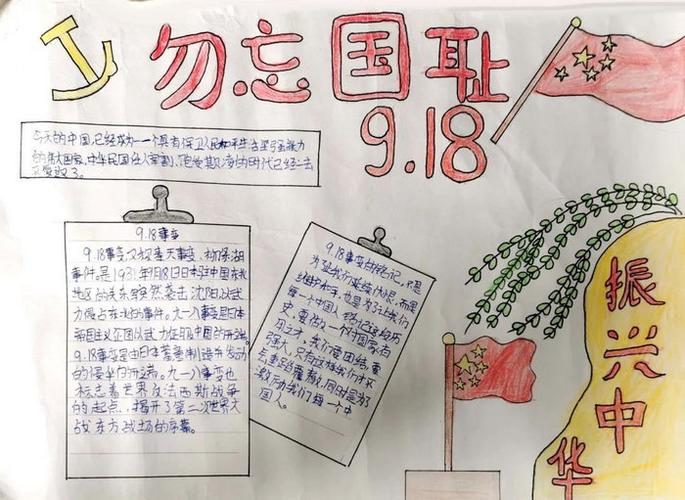 勿忘国耻
9.18
今天的中国,已经成为一个具有保卫人民和平生活坚强能力
的伟大国家,中华民国任人宰割、饱受欺凌的时代已经一去
不复返了。
9.18事变
9.18事变又称奉天事变、柳条湖
事件,是1931年9月18日日本驻中国东北
地区的关东军突然袭击沈阳,以武
力侵占东北的事件。九一八事变是日本
帝国主义企图以武力征服中国的开端。
9.18事变是由日本蓄意制造并发动
的侵华的开端。九一八事变也
标志着世界反法西斯战争
的起点,揭开了第二次世界大
战东方战场的序幕。
9.18事变的铭记,不是
为延续仇恨,而是
维护和平,也是为了让我们
每一个中国人铭记这段历
史,要估一个中国家有
强大,只有这样我们才不
会重蹈覆辙,同时是
激励我们每一个中
国人。
振兴中
华